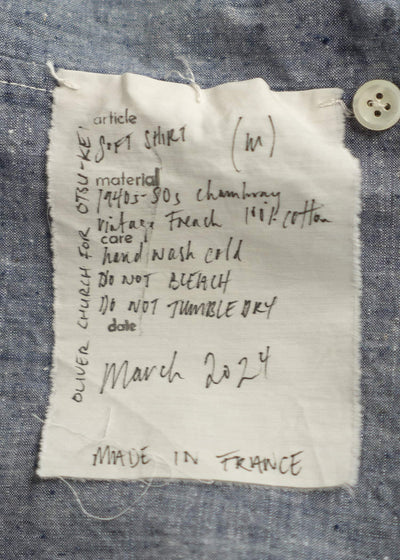 article
SOFT SHIRT (M)
material
1940s-50s chambray
vintage French 100% cotton
care
hand wash cold
DO NOT BLEACH
DO NOT TUMBLE DRY
date
March 2024
MADE IN FRANCE
OLIVER CHURCH FOR OTSU-KE'